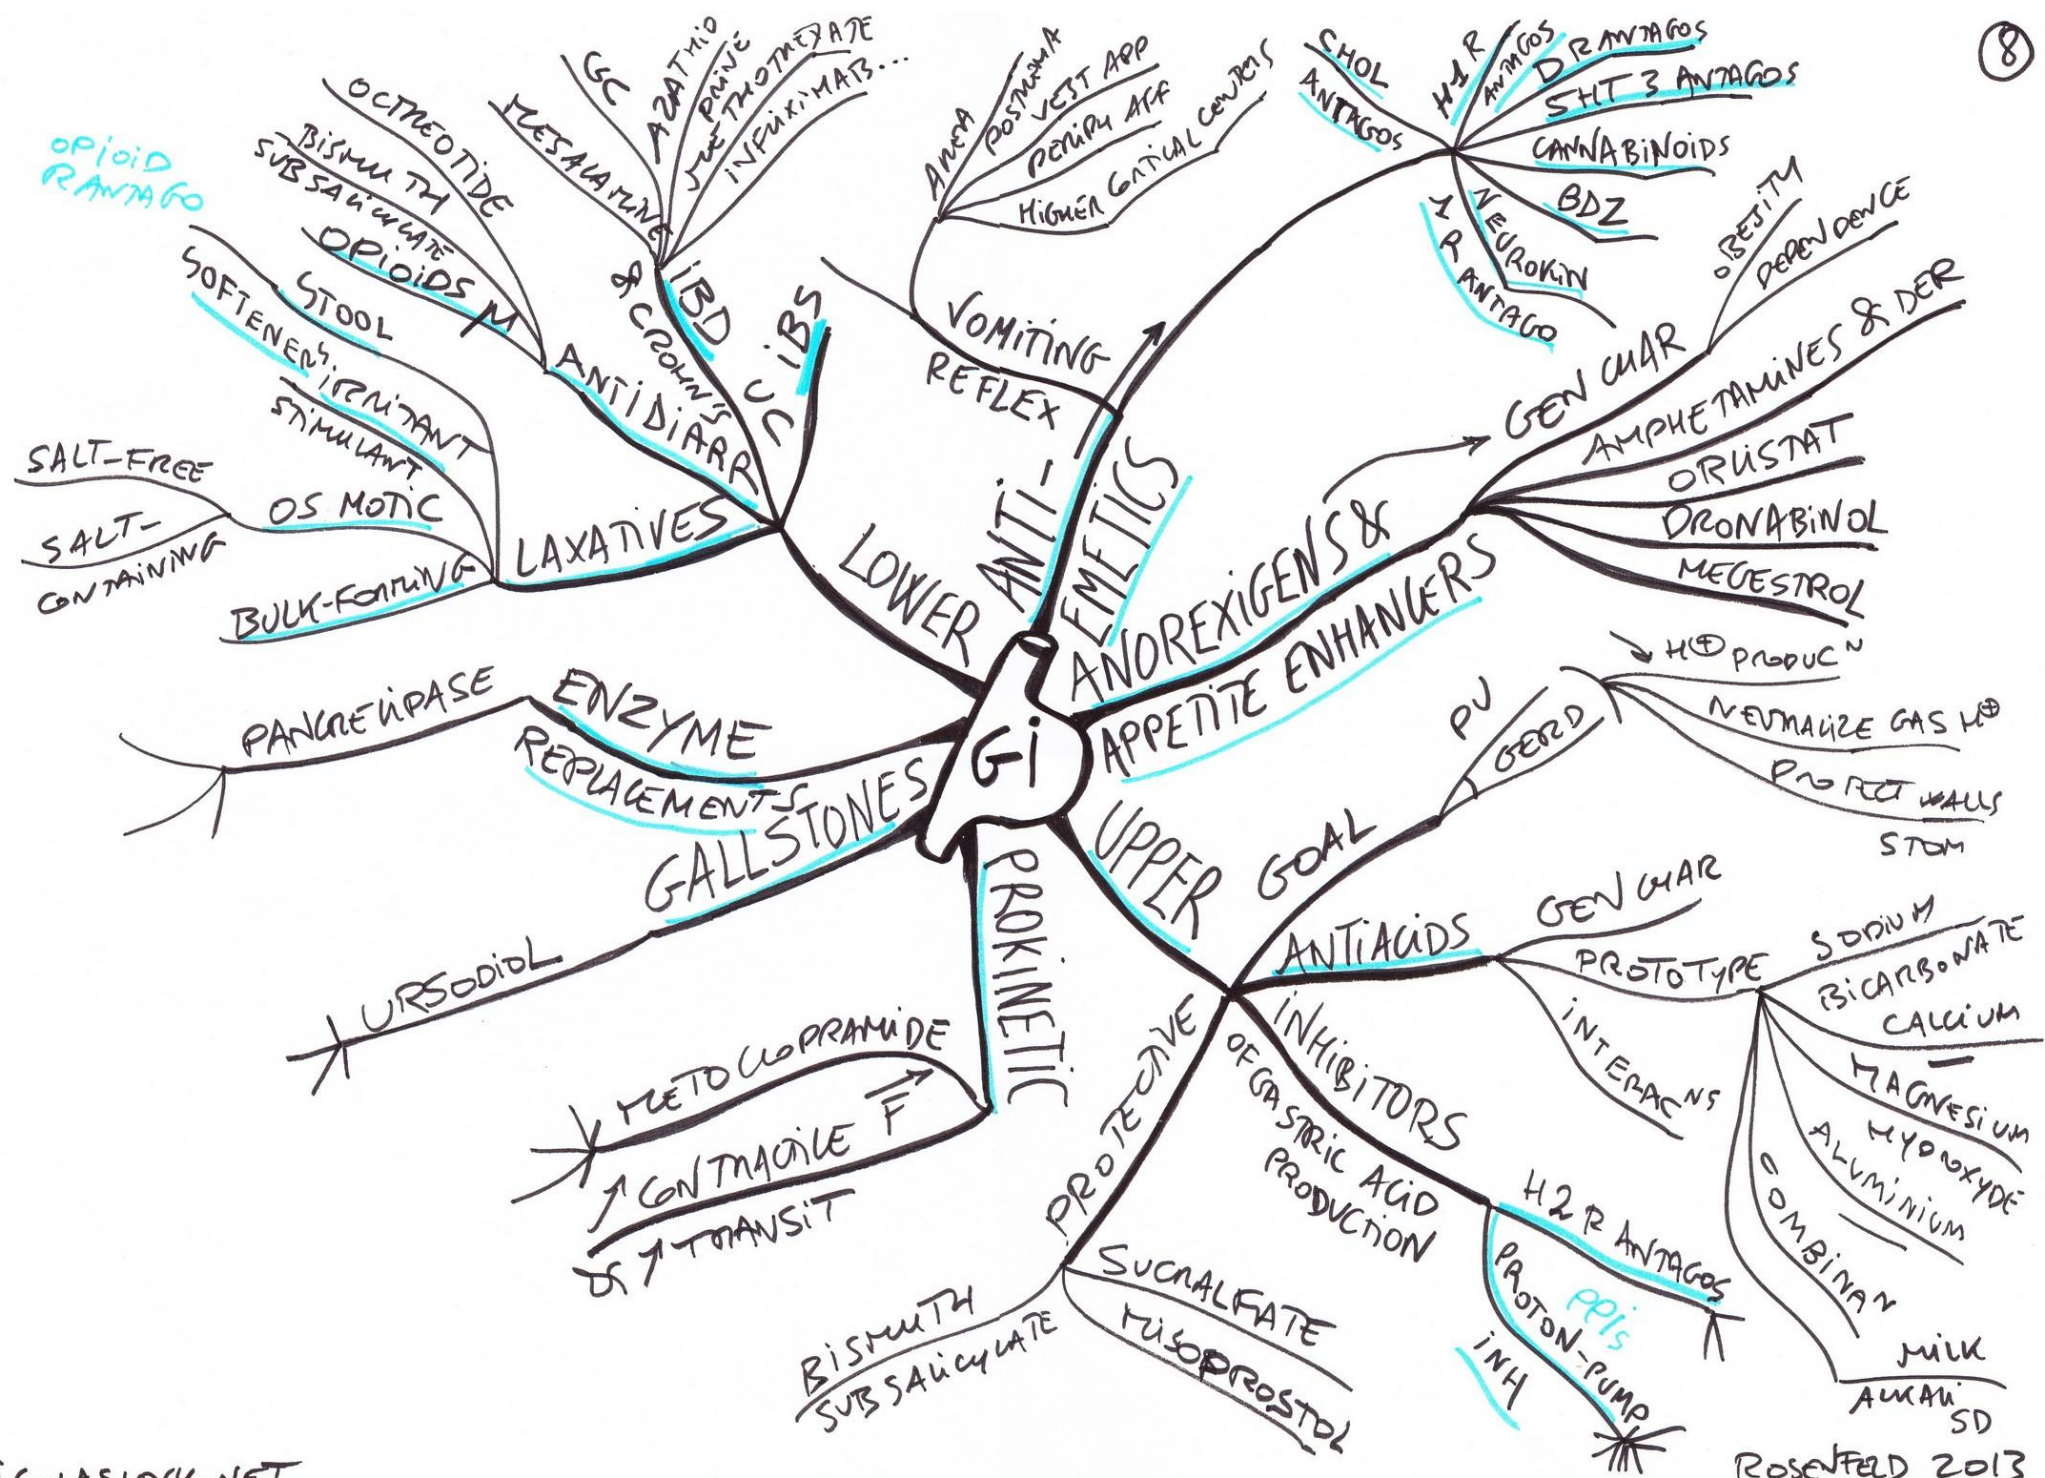 8
GI
ANTI-
EMETICS
VOMITING
REFLEX
AREA
POSTREMA
VEST APP
PERIPH AFF
HIGHER CORTICAL CENTERS
CHOL
ANTAGOS
H1R
ANTAGOS
D R ANTAGOS
5HT 3 ANTAGOS
CANNABINOIDS
BDZ
NEUROKIN
1 R ANTAGO
ANOREXIGENS &
APPETITE ENHANCERS
GEN CHAR
OBESITY
DEPENDENCE
AMPHETAMINES & DER
ORLISTAT
DRONABINOL
MEGESTROL
UPPER
GOAL
PU
GERD
↘ H⊕ PRODUC N
NEUTRALIZE GAS H⊕
PROTECT WALLS
STOM
ANTIACIDS
GEN CHAR
PROTOTYPE
SODIUM
BICARBONATE
CALCIUM
—
MAGNESIUM
HYDROXYDE
ALUMINIUM
—
COMBINAN
MILK
ALKALI
SD
INTERAC NS
INHIBITORS
OF GASTRIC ACID
PRODUCTION
H2 R ANTAGOS
PROTON-PUMP
INH
PPIs
PROTECTIVE
SUCRALFATE
MISOPROSTOL
BISMUTH
SUBSALICYLATE
PROKINETIC
METOCLOPRAMIDE
↗ CONTRACTILE F
OR ↗ TRANSIT
GALLSTONES
URSODIOL
ENZYME
REPLACEMENTS
PANCRELIPASE
LOWER
LAXATIVES
BULK-FORMING
OSMOTIC
SALT-FREE
SALT-
CONTAINING
IRRITANT
STIMULANT
STOOL
SOFTENERS
OPIOID
R ANTAGO
ANTIDIARR
OPIOIDS M
BISMUTH
SUBSALICYLATE
OCTREOTIDE
IBD
& CROHN'S
UC
MESALAMINE
GC
AZATHIO
PRINE
METHOTREXATE
INFLIXIMAB...
IBS
ROSENFELD 2013